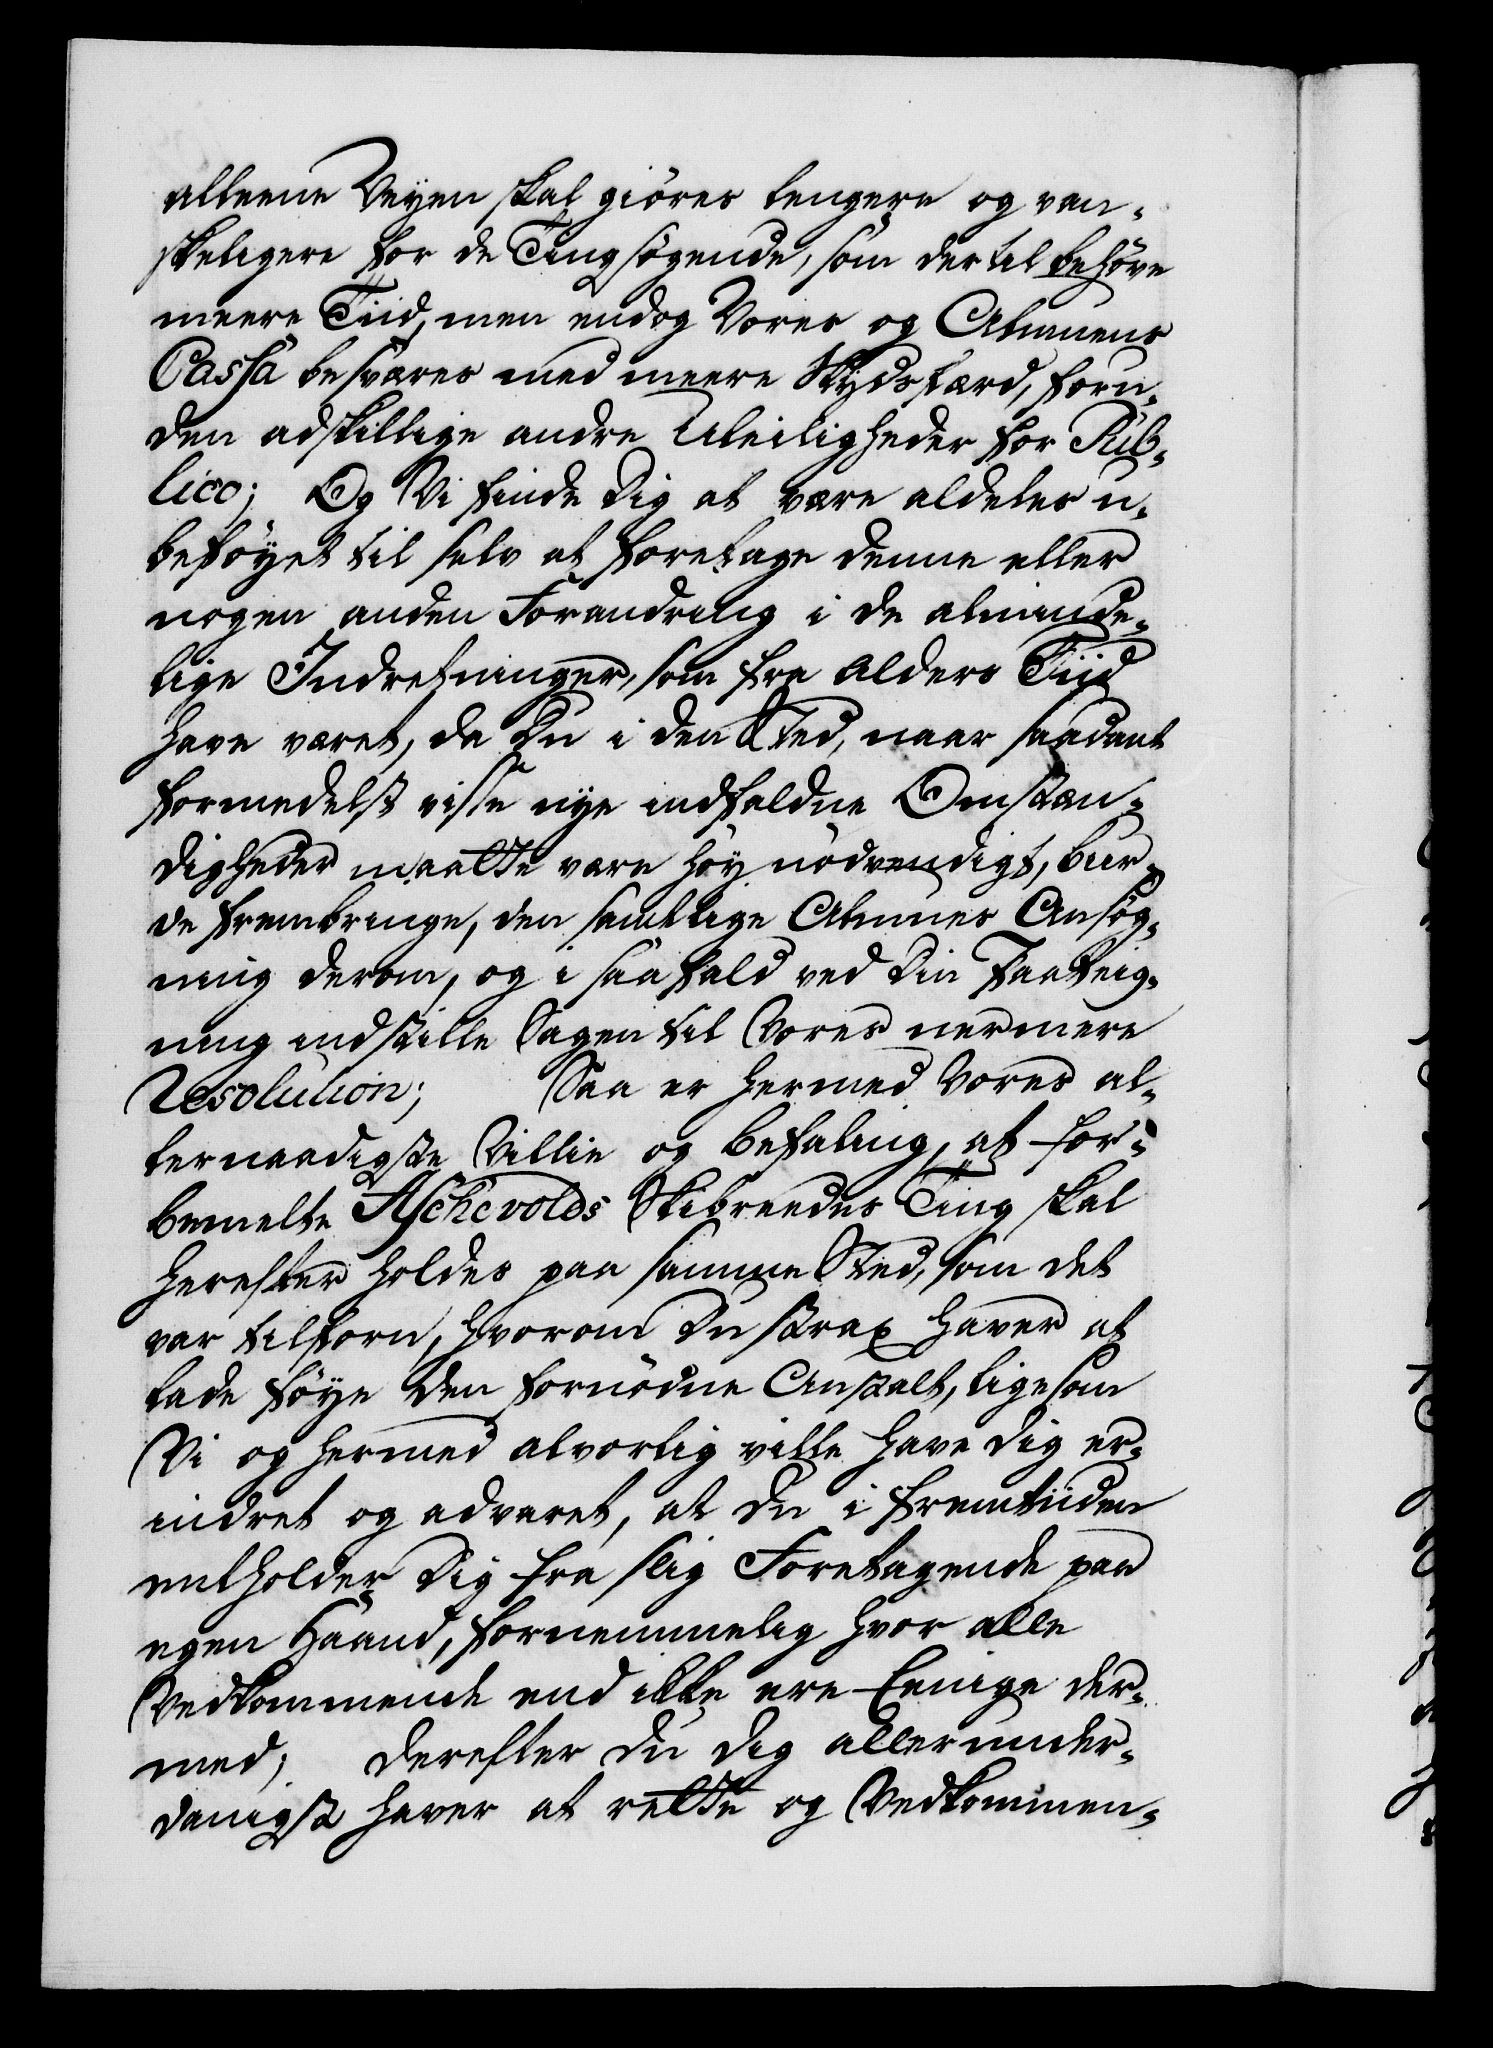 alleene Veyen skal giöres lengere og van-
skeligere for de Tingsögende, som dertil behöve
meere Tiid, men endog Vores og Almuens
Cassa besværes med meere Skydsfærd, foru-
den adskillige andre Uleiligheder for Pub-
lico; Og Vi finde Dig at være aldeles u-
beföyet til selv at foretage denne eller
nogen anden Forandring i de alminde-
lige Indretninger, som fra Alders Tiid
have været, da Du i den Sted, naar saadant
formedelst visse nye indfaldne Omstæn-
digheder maatte være höy nödvendigt, bur-
de frembringe, den samtlige Almues Ansög-
ning derom, og i saa fald ved Din Paateig-
ning indstille Sagen til Vores nermere
Resolution; Saa er hermed Vores al-
lernaadigste Villie og Befaling, at for-
bemelte Aschevolds Skibreedes Ting skal
herefter holdes paa samme Sted, som det
var tilforn, hvorom Du strax haver at
lade föye den fornödne Anstalt, ligesom
Vi og hermed alvorlig ville have Dig er-
indret og advaret, at Du i Fremtiiden
entholder Dig fra slig Foretagende paa
egen Haand, fornemmelig hvor alle
Vedkommende end ikke ere Eenige der-
med; Derefter Du Dig allerunder-
danigst haver at rette og Vedkommen-